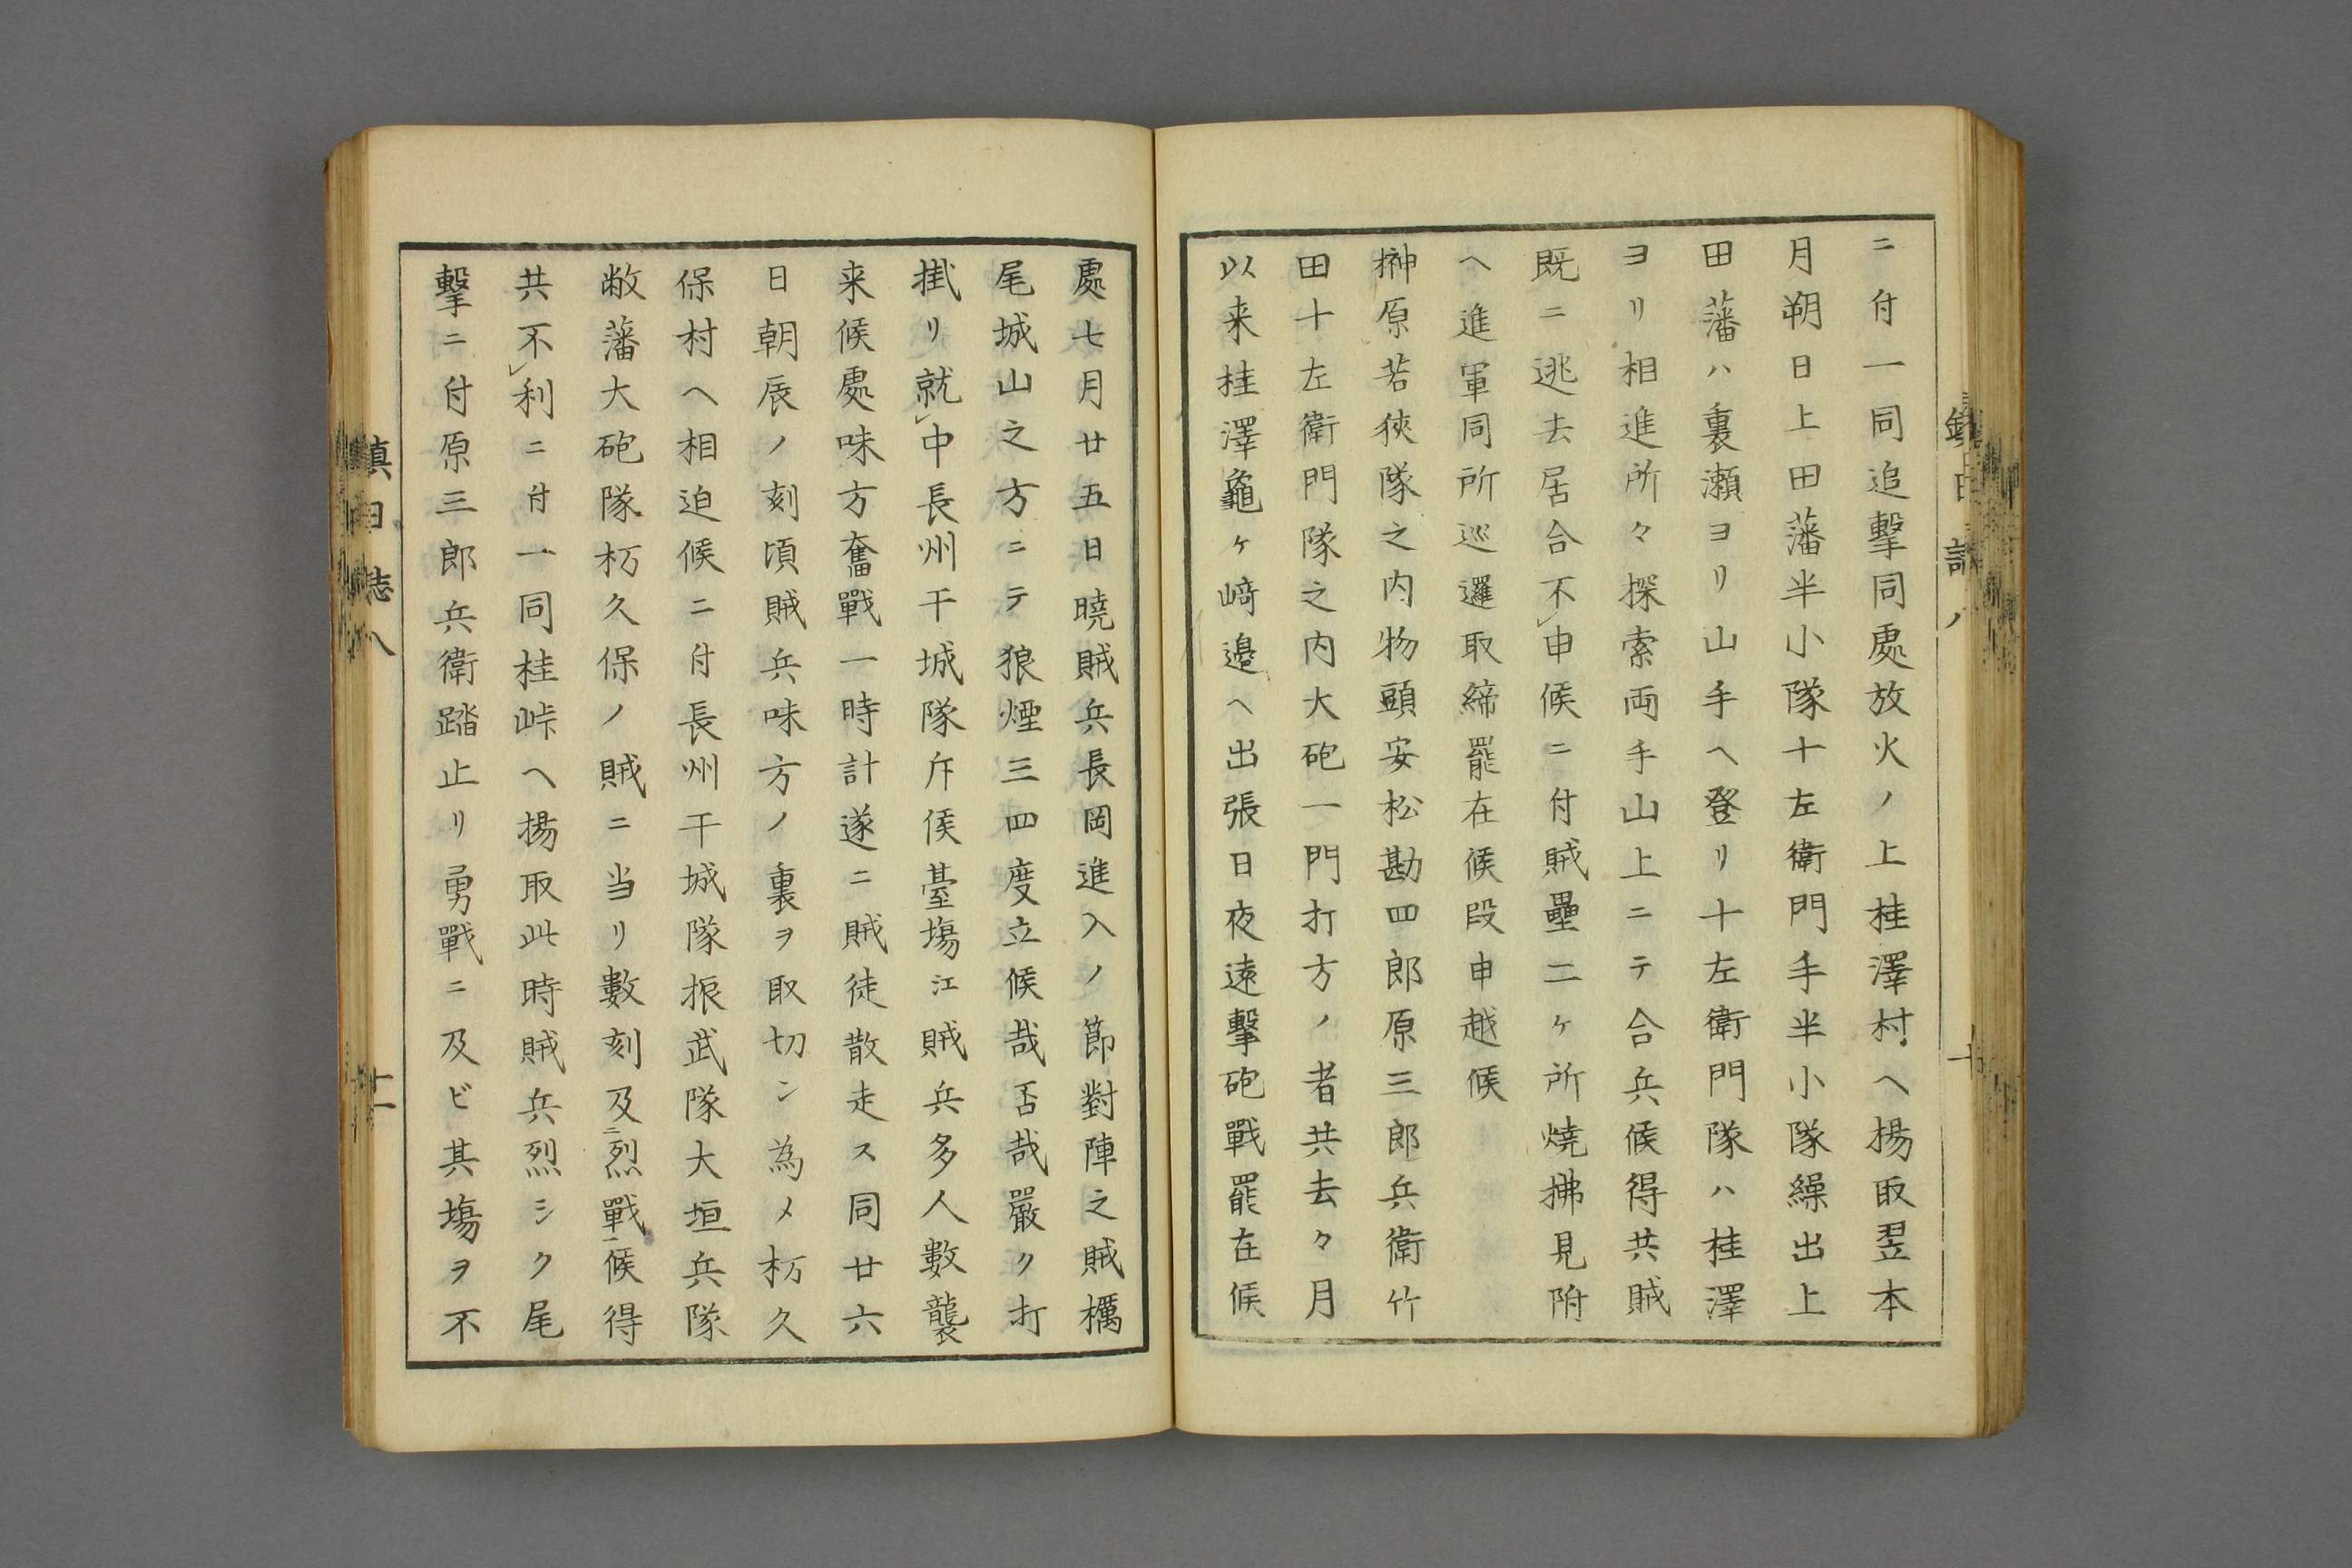 ニ付一同追撃同處放火ノ上桂澤村ヘ揚取翌本
月朔日上田藩半小隊十左衛門手半小隊繰出上
田藩ハ裏瀬ヨリ山手ヘ登リ十左衛門隊ハ桂澤
ヨリ相進所々探索両手山上ニテ合兵候得共賊
既ニ逃去居合不申候ニ付賊壘二ヶ所焼拂見附
ヘ進軍同所巡邏取締罷在候段申越候
榊原若狹隊之内物頭安松勘四郎原三郎兵衛竹
田十左衛門隊之内大砲一門打方ノ者共去々月
以来桂澤龜ヶ﨑邉ヘ出張日夜遠撃砲戰罷在候
處七月廿五日曉賊兵長岡進入ノ節對陣之賊櫔
尾城山之方ニテ狼煙三四度立候哉否哉嚴ク打
掛リ就中長州干城隊斥侯臺塲江賊兵多人數襲
来候處味方奮戰一時計遂ニ賊徒散走ス同廿六
日朝辰ノ刻頃賊兵味方ノ裏ヲ取切ン為メ杤久
保村ヘ相迫候ニ付長州干城隊振武隊大垣兵隊
敝藩大砲隊杤久保ノ賊ニ当リ數刻及ニ烈戰一候得
共不利ニ付一同桂峠ヘ揚取此時賊兵烈シク尾
撃ニ付原三郎兵衛踏止リ勇戰ニ及ビ其塲ヲ不
鎮日誌八
十一